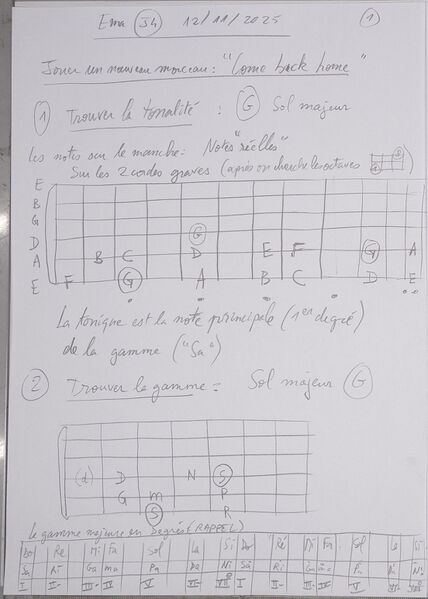 Ema 12/11/2025 1
Jouer un nouveau morceau: "Come back home"
1 Trouver la tonalité : G Sol majeur
Les notes sur le manche: Notes "réelles"
Sur les 2 cordes graves (après on cherche les octaves )
E
B
G
D G
A B C D E F G A
E F G A B C D E
La tonique est la note principale (1er degré)
de la gamme ("Sa")
2 Trouver la gamme = Sol majeur G
(d) D N S
G m P
S R
La gamme majeure en Degrés (RAPPEL)
Do Re Mi Fa Sol La Si Do Ré Mi Fa Sol La Si
Sa Ri Ga ma Pa Da Ni Sa Ri Ga ma Pa Da Ni